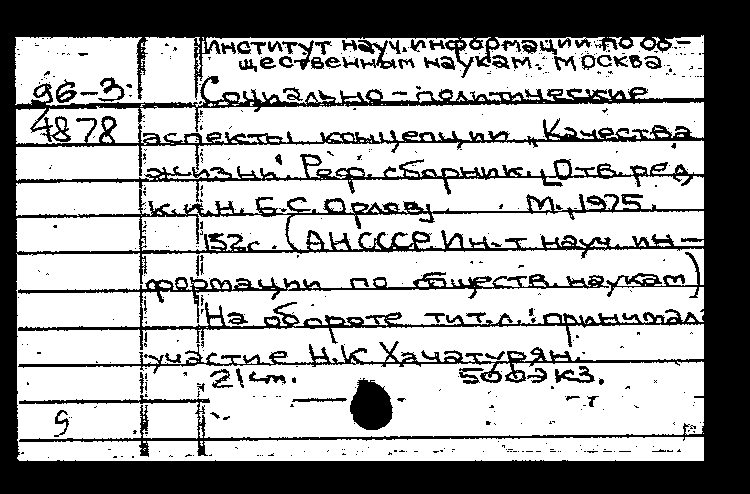 Институт науч.информации по об-
щественным наукам. Москва.
96-3: Социально-политические
4878 аспекты концепции „Качества
жизни". Реф. сборник. [Отв. ред.
к.и.н. Б.С. Орлов]. М., 1975.
152с. (АН СССР. Ин-т науч. ин-
формации по обществ. наукам)
На обороте тит.л.: принимал
участие Н.К Хачатурян.
21см. 500экз.
9